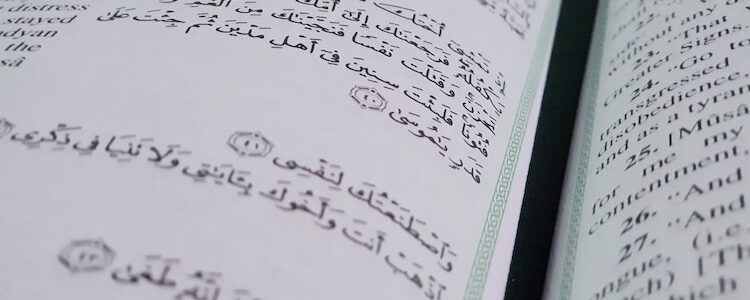 distress
stayed
the
فَرَجَعْنَٰكَ إِلَىٰٓ أُمِّكَ
وَقَتَلْتَ نَفْسًا فَنَجَّيْنَٰكَ مِنَ
فُتُونًا فَلَبِثْتَ سِنِينَ فِىٓ أَهْلِ مَدْيَنَ ثُمَّ جِئْتَ عَلَىٰ
قَدَرٍ يَٰمُوسَىٰ ٤٠
وَٱصْطَنَعْتُكَ لِنَفْسِى ٤١
ٱذْهَبْ أَنتَ وَأَخُوكَ بِـَٔايَٰتِى وَلَا تَنِيَا فِى ذِكْرِى
إِنَّهُۥ طَغَىٰ ٤٣
22.
without any
23. "That
Greater Signs.
24. "Go to
transgressed
disobedience
and as a tyran
25. [Mûsâ
for me my
contentment.
26. "And
27. "And
ongue, (i.e.
[Th